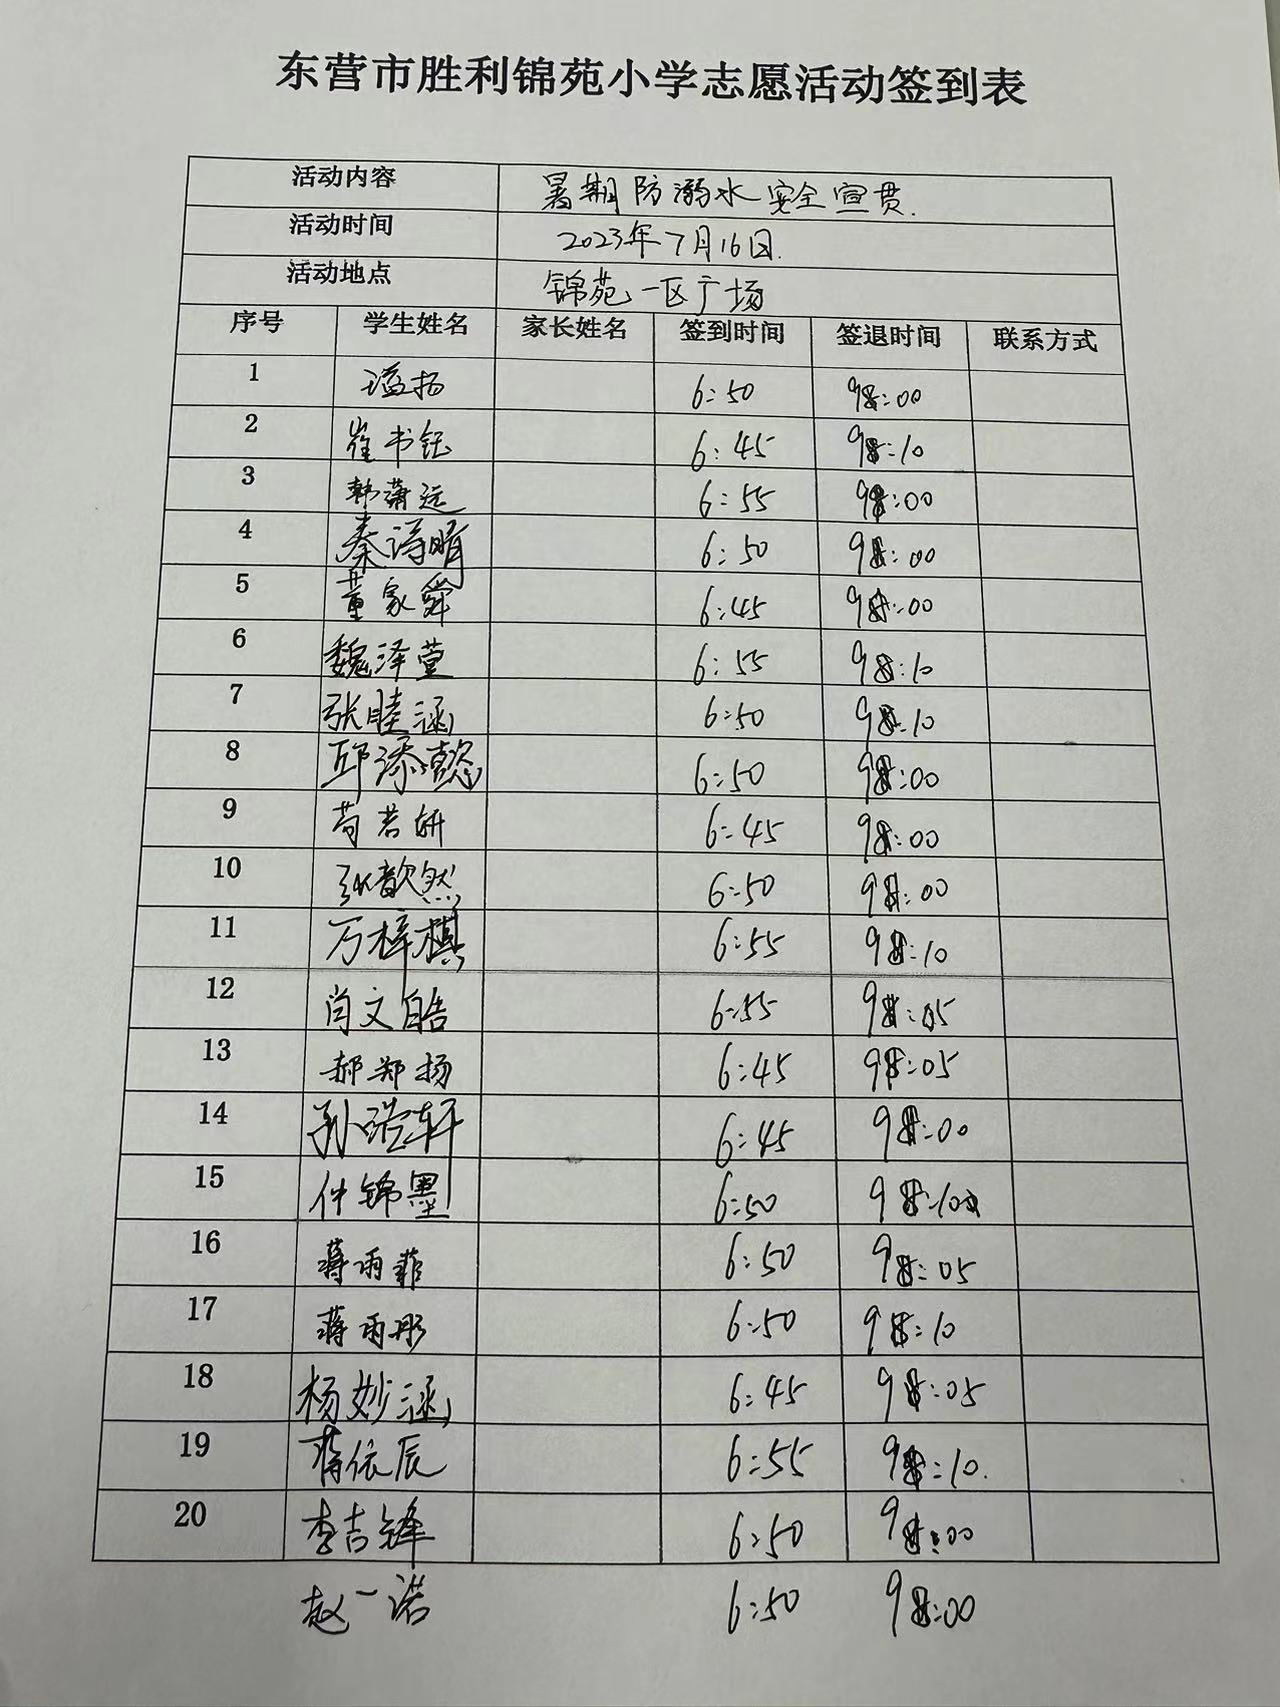 东营市胜利锦苑小学志愿活动签到表
活动内容 暑期防溺水安全宣贯.
活动时间 2023年7月16日.
活动地点 锦苑一区广场
序号 学生姓名 家长姓名 签到时间 签退时间 联系方式
1 6:50 9:00
2 崔书钰 6:45 9:10
3 韩萧远 6:55 9:00
4 秦诗晴 6:50 9:00
5 董家舜 6:45 9:00
6 魏泽萱 6:55 9:10
7 张睦涵 6:50 9:10
8 邱添懿 6:50 9:00
9 苟若妍 6:45 9:00
10 张歆然 6:50 9:00
11 万梓棋 6:55 9:10
12 肖文皓 6:55 9:05
13 郝郑扬 6:45 9:05
14 孙浩轩 6:45 9:00
15 仲锦墨 6:50 9:10
16 蒋雨菲 6:50 9:05
17 蒋雨彤 6:50 9:10
18 杨妙涵 6:45 9:05
19 蒋依辰 6:55 9:10.
20 李吉锋 6:50 9:00
赵一诺 6:50 9:00